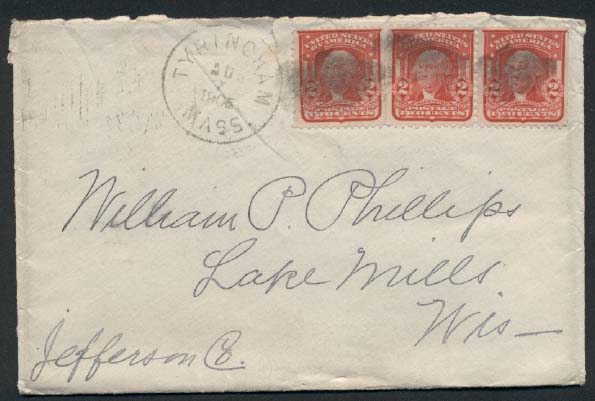 TYRINGHAM
AU
1906
MASS.
UNITED STATES OF AMERICA
2 2
POSTAGE
TWO CENTS
UNITED STATES OF AMERICA
2 2
POSTAGE
TWO CENTS
UNITED STATES OF AMERICA
2 2
POSTAGE
TWO CENTS
William P. Phillips
Lake Mills
Wis—
Jefferson Co.